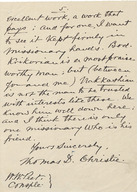 excellent work, a work that
pays: and for one, I want
to see it kept firmly in
missionary hands. Bod.
Kirkorian is a most praise
worthy man, but (between
you and me) Mukkashian
is not the man to be trusted
with interests like these. We
know him well down here,
and I think there is only
one missionary who is his
friend.
Yours Sincerely,
Thomas D. Christie.